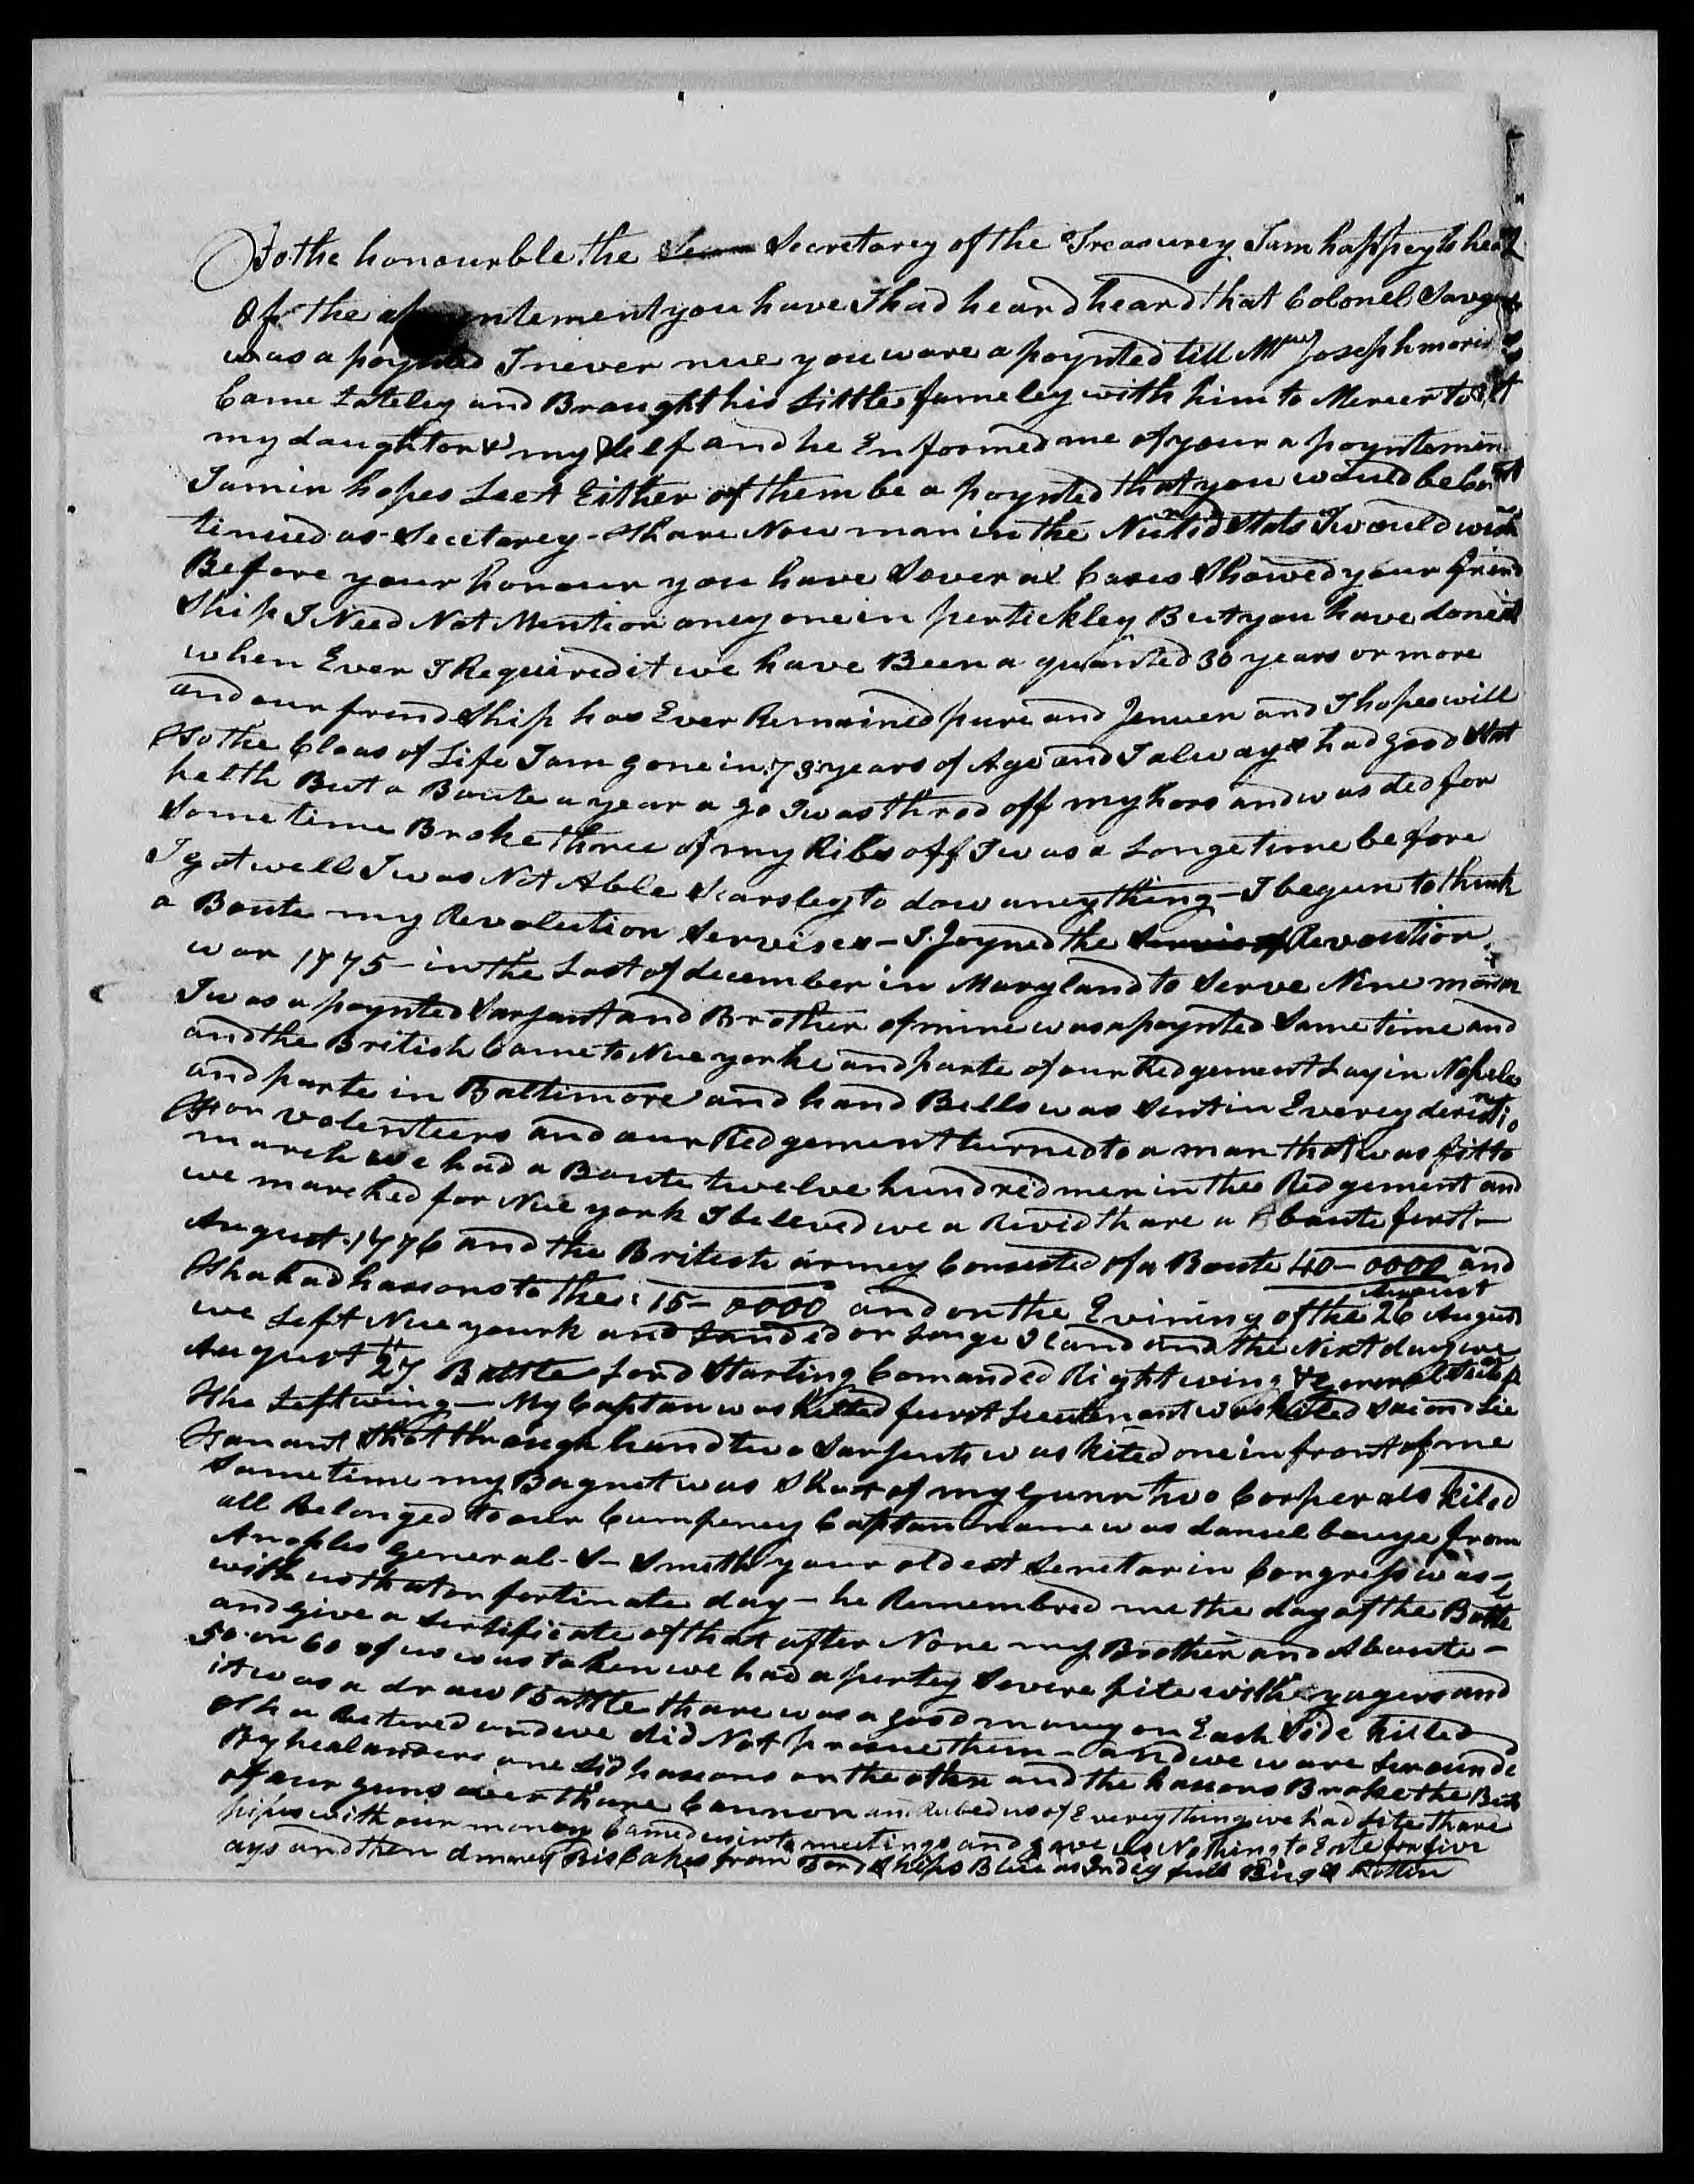 To the honourble the Secretarey of the Treasurey I am happey to hear
Of the a ntement you have I had heard heard that Colonel Savage
was a poynted I never nue you ware a poynted till Mr Joseph moris
Came Lateley and Braught his Little fameley with him to Mercer to
my daughtor & my Self and he Enformed me of your a poyntemen
I am in hopes Leet Either of them be a poynted that you would be Con
tinued as Secetarey - thare Now man in the Nutid Stats I would wish
Before your honour you have Several Cases Showed your frind
Ship I Need Not Mention aney one in pertickley But you have done it
when Ever I Required it we have Been a quanted 30 years or more
and our frind Ship has Ever Remained pure and Jenuen and I hopes will
To the Cloas of Life I am gone in 73 years of Age and I always had good Stat
helth But a Boute a year a go I was throd off my hors and was ded for
Some time Broke three of my Ribs off I was a Longe time before
I got well I was Not Able Scarsley to dow aneything - I begun to think
a Boute my Revolution Servises - I Joyned the Servis of Revoution
war 1775 - in the Last of december in Maryland to Serve Nine month
I was a poynted Sarjant and Brother of mine was apoynted Same time and
and the British Came to Nue yorke and parte of our Redgement Lay in Noples
and parte in Baltimore and hand Bills was Sent in Everey derection
For volenteers and our Redgement turned to a man that was fit to
march we had a Boute twelve hundred men in the Redgement and
we marched for Nue york I beleved we a Rivid thare a Aboute first -
August 1776 and the British armey Consisted of a Boute 40 - 0000 and
Tha had hasons to the: 15 - 0000 and on the Evining of the 26 August
August
we Left Nue yourk and Landed on Longe I land and the Next day we
August 27th Battle Lord Starling Comanded Right wing & General
the Left wing - My Captan was killed furst Lieutenant was killed Saiond Lie
Tanant Shot through hand two Sarjents was kiled one in front of me
Same time my Bagnet was Shot of my Gunn two Corperals kiled
all Belonged to our Cumpeney Captan name was daniel bouye from
Anoples General - S - Smith your oldest Senetar in Congress was -
with us that on fortinate day - he Remembred me the day of the Battle
and give a Sertificate of that after None my Brother and Aboute -
50 or 60 of us was taken we had a pertey Severe fite with yagers and
it was a draw Battle thare was a good maney on Each Side killed
tha Retered and we did Not prasue them - and we ware Surounde
By healanders one Sid hasons on the other and the hasons Broke the But
of our guns over thare Cannon and Rubed us of Everey thing we had Lite thare
pipes with our money Camed us into meetings and gave us Nothing to Eate for five
ays and then Biscakes from Ships Blue as Indig full Bugs Rotten